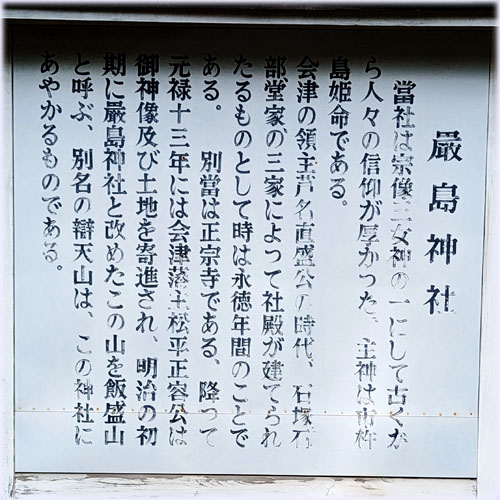 嚴島神社
當社は宗像三女神の一にして古くか
ら人々の信仰が厚かった、主神は市杵
島姫命である。
会津の領主芦名直盛公の時代、石塚石
部堂家の三家によって社殿が建てられ
たるものとして時は永徳年間のことで
ある。　別當は正宗寺である、降って
元禄十三年には会津落主松平正容公は
御神像及び土地を寄進され、明治の初
期に嚴島神社と改めたこの山を飯盛山
と呼ぶ、別名の辯天山は、この神社に
あやかるものである。